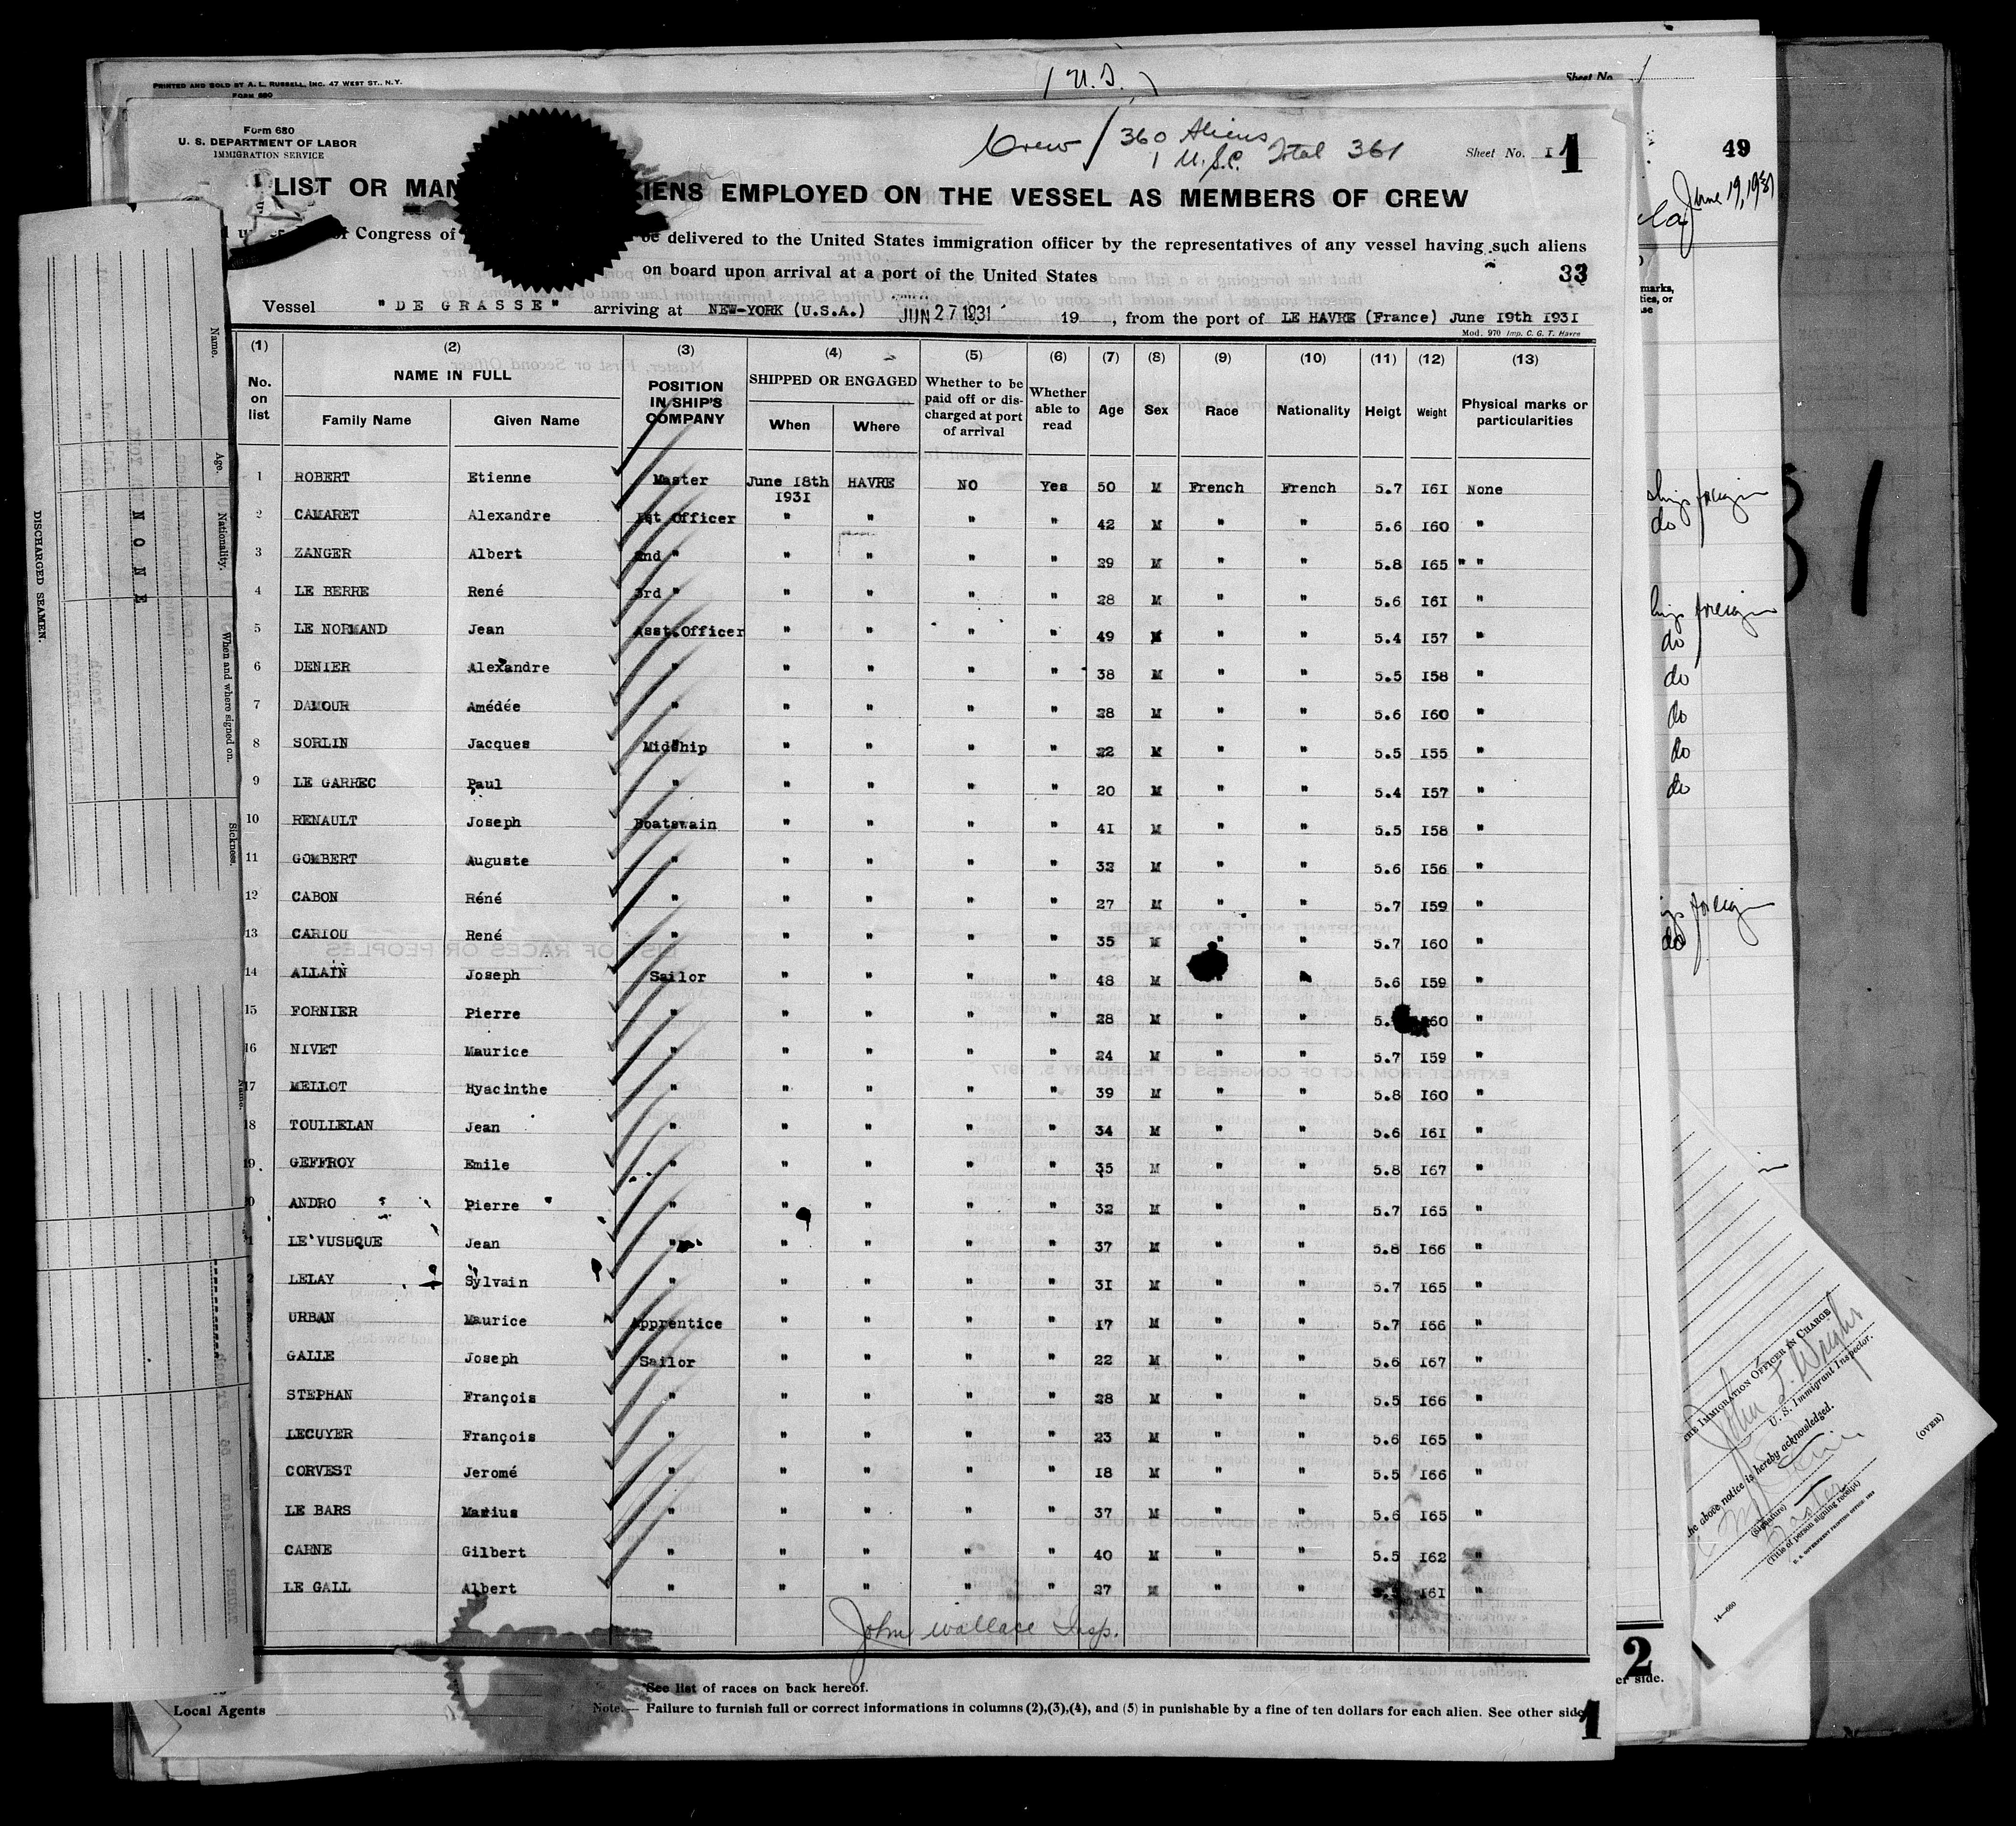 PRINTED AND SOLD BY A. L. RUSSELL, INC. 47 WEST ST., N.Y.
FORM 680
(U.S.)
Sheet No.
Form 680
U. S. DEPARTMENT OF LABOR
IMMIGRATION SERVICE
Crew / 360 Aliens
1 U.S.C. Total 361
Sheet No. I 1
49
June 19, 1931
LIST OR MAN IENS EMPLOYED ON THE VESSEL AS MEMBERS OF CREW
of Congress of be delivered to the United States immigration officer by the representatives of any vessel having such aliens
on board upon arrival at a port of the United States
33
Vessel "DE GRASSE" arriving at NEW-YORK (U.S.A.) JUN 27 1931 19 , from the port of LE HAVRE (France) June 19th 1931
Mod. 970 Imp. C. G. T. Havre
(1) (2) (3) (4) (5) (6) (7) (8) (9) (10) (11) (12) (13)
No. on list NAME IN FULL Family Name Given Name POSITION IN SHIP'S COMPANY SHIPPED OR ENGAGED When Where Whether to be paid off or discharged at port of arrival Whether able to read Age Sex Race Nationality Heigt Weight Physical marks or particularities
1 ROBERT Etienne Master June 18th 1931 HAVRE NO Yes 50 M French French 5.7 161 None
2 CAMARET Alexandre 1st Officer " " " " 42 M " " 5.6 160 "
3 ZANGER Albert 2nd " " " " " 29 M " " 5.8 165 " "
4 LE BERRE René 3rd " " " " " 28 M " " 5.6 161 "
5 LE NORMAND Jean Asst.Officer " " " " 49 M " " 5.4 157 "
6 DENIER Alexandre " " " " " 38 M " " 5.5 158 "
7 DAMOUR Amédée " " " " " 28 M " " 5.6 160 "
8 SORLIN Jacques Midship " " " " 22 M " " 5.5 155 "
9 LE GARREC Paul " " " " " 20 M " " 5.4 157 "
10 RENAULT Joseph Boatswain " " " " 41 M " " 5.5 158 "
11 GOMBERT Auguste " " " " " 32 M " " 5.6 156 "
12 CABON Réné " " " " " 27 M " " 5.7 159 "
13 CARIOU René " " " " " 35 M " " 5.7 160 "
14 ALLAIN Joseph Sailor " " " " 48 M " " 5.6 159 "
15 FORNIER Pierre " " " " " 28 M " " 5. 60 "
16 NIVET Maurice " " " " " 24 M " " 5.7 159 "
17 MELLOT Hyacinthe " " " " " 39 M " " 5.8 160 "
18 TOULLELAN Jean " " " " " 34 M " " 5.6 161 "
19 GEFFROY Emile " " " " " 35 M " " 5.8 167 "
20 ANDRO Pierre " " " " " 32 M " " 5.7 165 "
1 LE VUSUQUE Jean " " " " " 37 M " " 5.8 166 "
2 LELAY Sylvain " " " " " 31 M " " 5.7 165 "
3 URBAN Maurice Apprentice " " " " 17 M " " 5.7 166 "
GALLE Joseph Sailor " " " " 22 M " " 5.6 167 "
STEPHAN François " " " " " 28 M " " 5.5 166 "
LECUYER François " " " " " 23 M " " 5.6 165 "
CORVEST Jeromé " " " " " 18 M " " 5.5 166 "
LE BARS Marius " " " " " 37 M " " 5.6 165 "
CARNE Gilbert " " " " " 40 M " " 5.5 162 "
LE GALL Albert " " " " " 27 M " " 161 "
John Wallace Insp.
See list of races on back hereof.
Local Agents
Note.— Failure to furnish full or correct informations in columns (2),(3),(4), and (5) in punishable by a fine of ten dollars for each alien. See other side
1
2
er side.
DISCHARGED SEAMEN.
NONE
Name.
Age.
Nationality.
When and where signed on.
Sickness.
marks,
ties, or
foreign
do
foreign
do
do
do
do
do
foreign
do
THE IMMIGRATION OFFICER IN CHARGE
John J. Wright
U. S. Immigrant Inspector.
the above notice is hereby acknowledged.
(Signature)
Master
(Title of person signing receipt)
U. S. GOVERNMENT PRINTING OFFICE
(OVER)
14—660